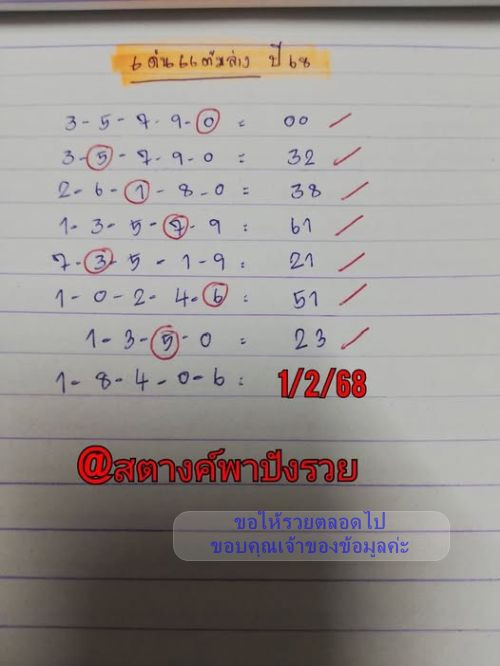 ปี 68
3-5-7-9-0 = 00
3-5-7-9-0 = 32
2-6-1-8-0 = 38
1-3-5-7-9 = 61
7-3-5-1-9 = 21
1-0-2-4-6 = 51
1-3-5-0 = 23
1-8-4-0-6 = 1/2/68
@สตางค์พาปังรวย
ขอให้รวยตลอดไป
ขอบคุณเจ้าของข้อมูลค่ะ